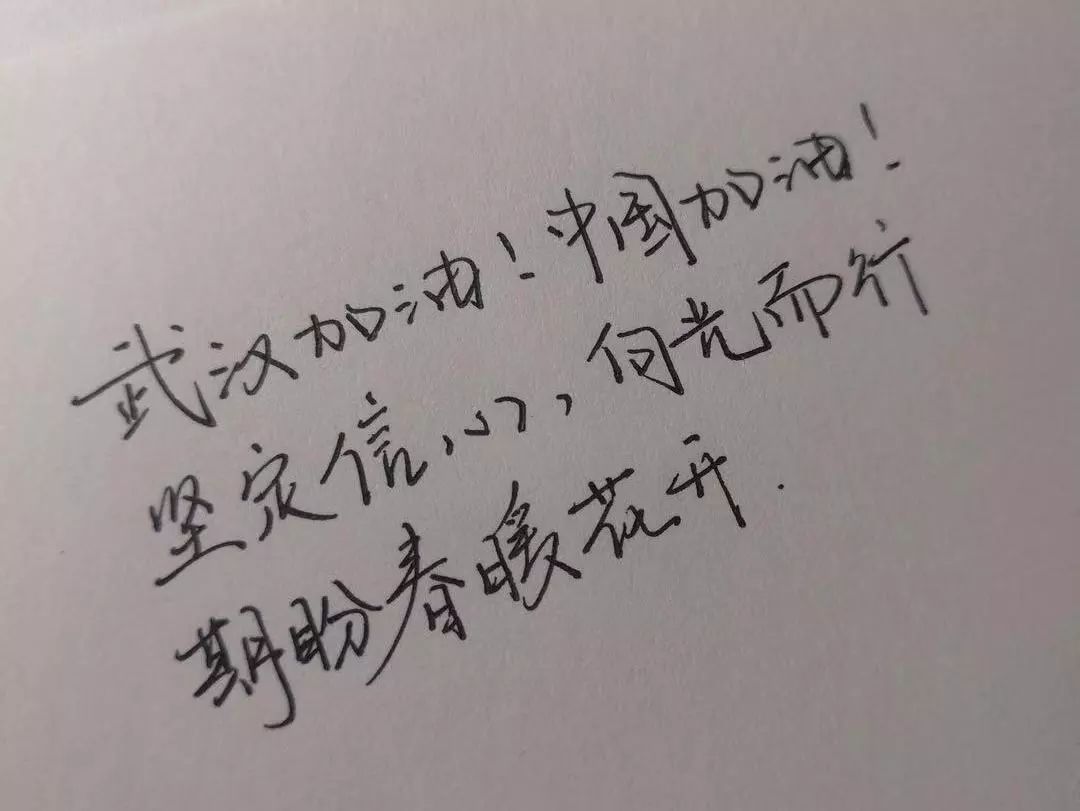 武汉加油!中国加油!
坚定信心,向光而行
期盼春暖花开.